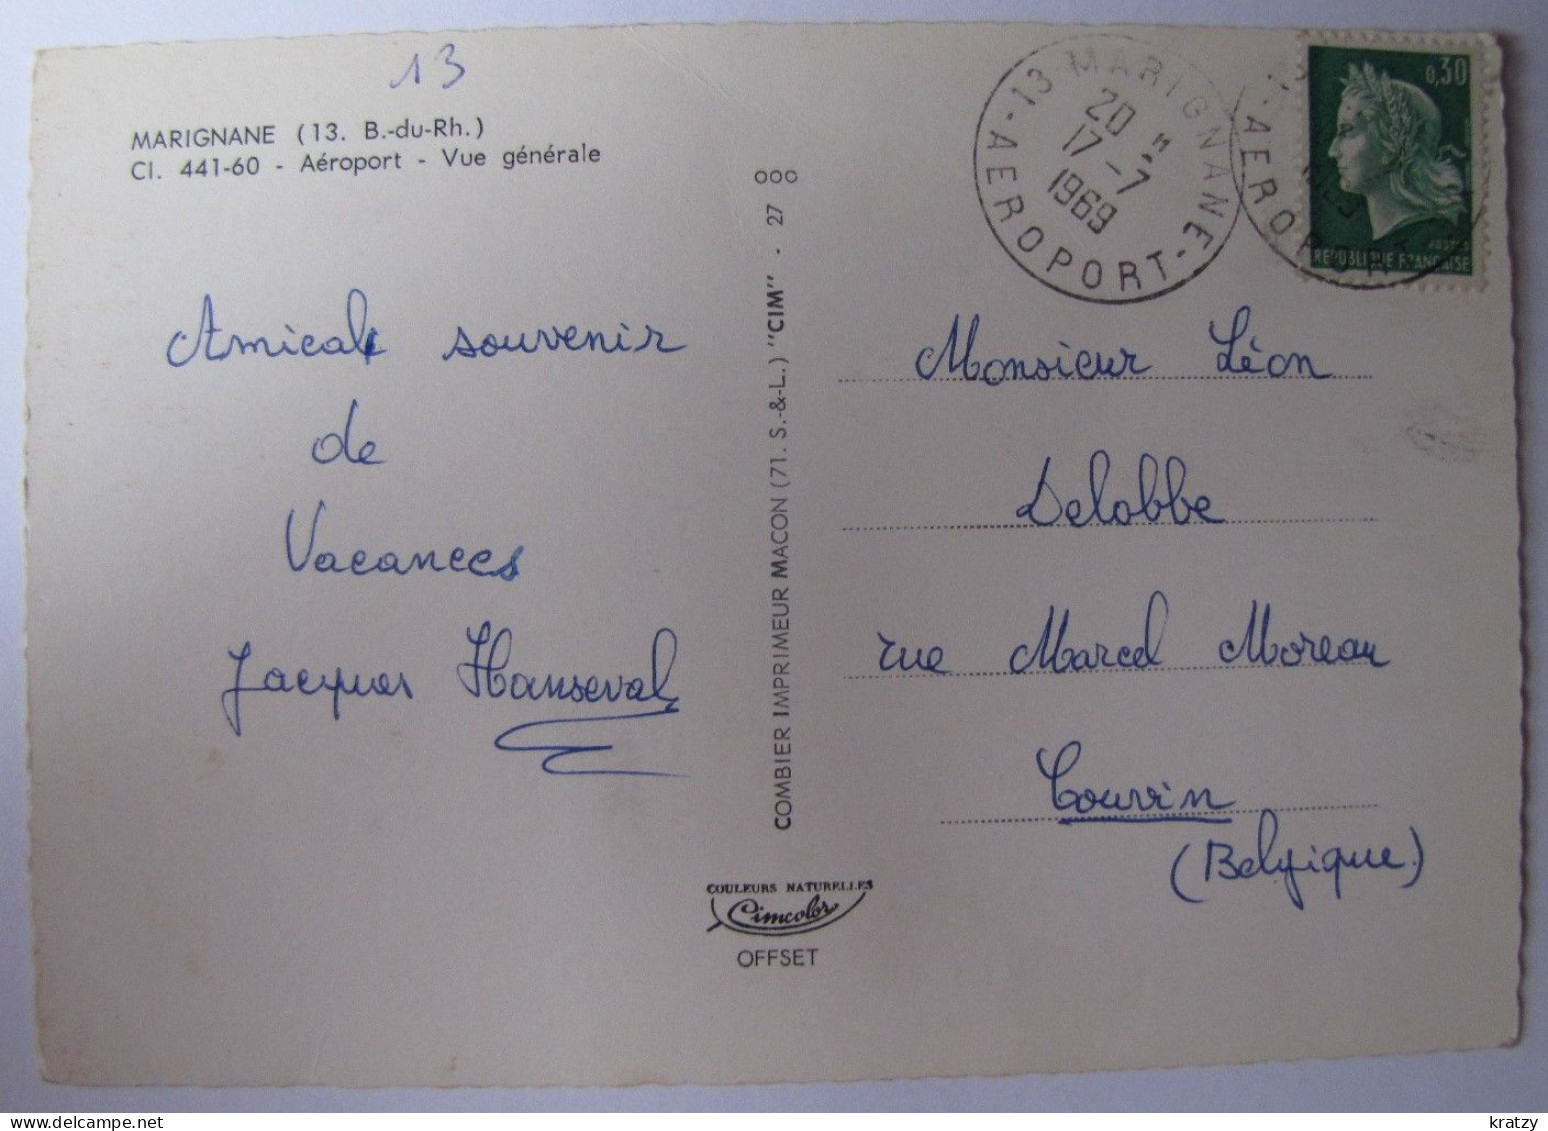 13
MARIGNANE (13. B.-du-Rh.)
Cl. 441-60 - Aéroport - Vue générale
Amical souvenir
de
Vacances
Jacques Hanseval
COMBIER IMPRIMEUR MACON (71. S.-&-L.) "CIM" - 27 ooo
COULEURS NATURELLES
Cimcolor
OFFSET
13 MARIGNANE
- AEROPORT -
20 H
17 - 7
1969
- AEROPORT
0,30
POSTES
REPUBLIQUE FRANÇAISE
Monsieur Léon
Delobbe
rue Marcel Moreau
Couvin
(Belgique)
kratzy